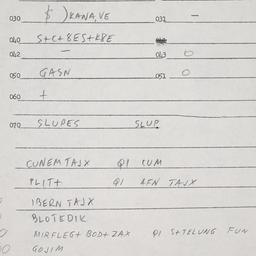 030 $ ) KANA,VE 032 –
040 S+C+8ES+K8E
042 – 043 O
050 GASN 051 O
060 +
070 SLUPES SLUP
CUNEM TAJX QI CUM
PLIT+ QI AFN TAJX
IBERN TAJX
BLOTEDIK
MIRFLEG+ BOD+ZAX QI S+TELUNG FUN
GOJIM